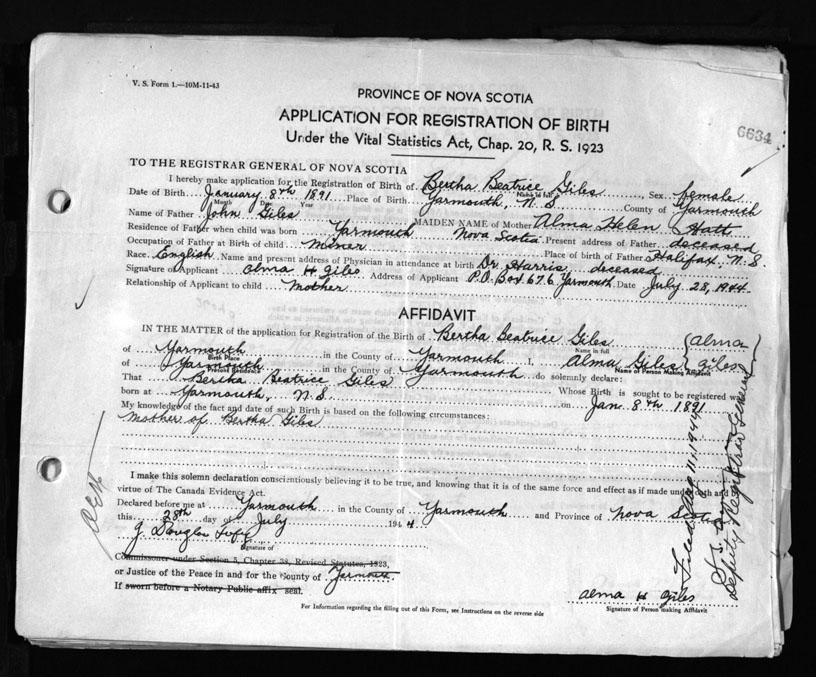 V. S. Form 1.—10M-11-43
PROVINCE OF NOVA SCOTIA
APPLICATION FOR REGISTRATION OF BIRTH
6634
Under the Vital Statistics Act, Chap. 20, R. S. 1923
TO THE REGISTRAR GENERAL OF NOVA SCOTIA
I hereby make application for the Registration of Birth of Bertha Beatrice Giles, Sex female
Name in full
Date of Birth January 8th 1891 Place of Birth Yarmouth, N. S County of Yarmouth
Month Date Year
Name of Father John Giles MAIDEN NAME of Mother Alma Helen Hatt
Residence of Father when child was born Yarmouth Nova Scotia Present address of Father deceased
Occupation of Father at Birth of child Miner Place of birth of Father Halifax, N. S.
Race English Name and present address of Physician in attendance at birth Dr Harris deceased
Signature of Applicant Alma H Giles Address of Applicant P.O. Box 676 Yarmouth Date July 28, 1944
Relationship of Applicant to child Mother
AFFIDAVIT
IN THE MATTER of the application for Registration of the Birth of Bertha Beatrice Giles
Name in full
of Yarmouth in the County of Yarmouth I, Alma Giles (Alma Giles)
Birth Place
Name of Person Making Affidavit
of Yarmouth in the County of Yarmouth do solemnly declare:
That Bertha Beatrice Giles Whose Birth is sought to be registered was
born at Yarmouth, N. S. on Jan. 8th 1891
My knowledge of the fact and date of such Birth is based on the following circumstances:
Mother of Bertha Giles
I make this solemn declaration conscientiously believing it to be true, and knowing that it is of the same force and effect as if made under oath and by
virtue of The Canada Evidence Act.
Declared before me at Yarmouth in the County of Yarmouth and Province of Nova Scotia
this 28th day of July 1944
J. Douglas
Signature of
Commissioner under Section 5, Chapter 38, Revised Statutes, 1923,
or Justice of the Peace in and for the County of Yarmouth.
If sworn before a Notary Public affix seal.
Alma H Giles
Signature of Person making Affidavit
For Information regarding the filling out of this Form, see Instructions on the reverse side
Deputy Registrar General